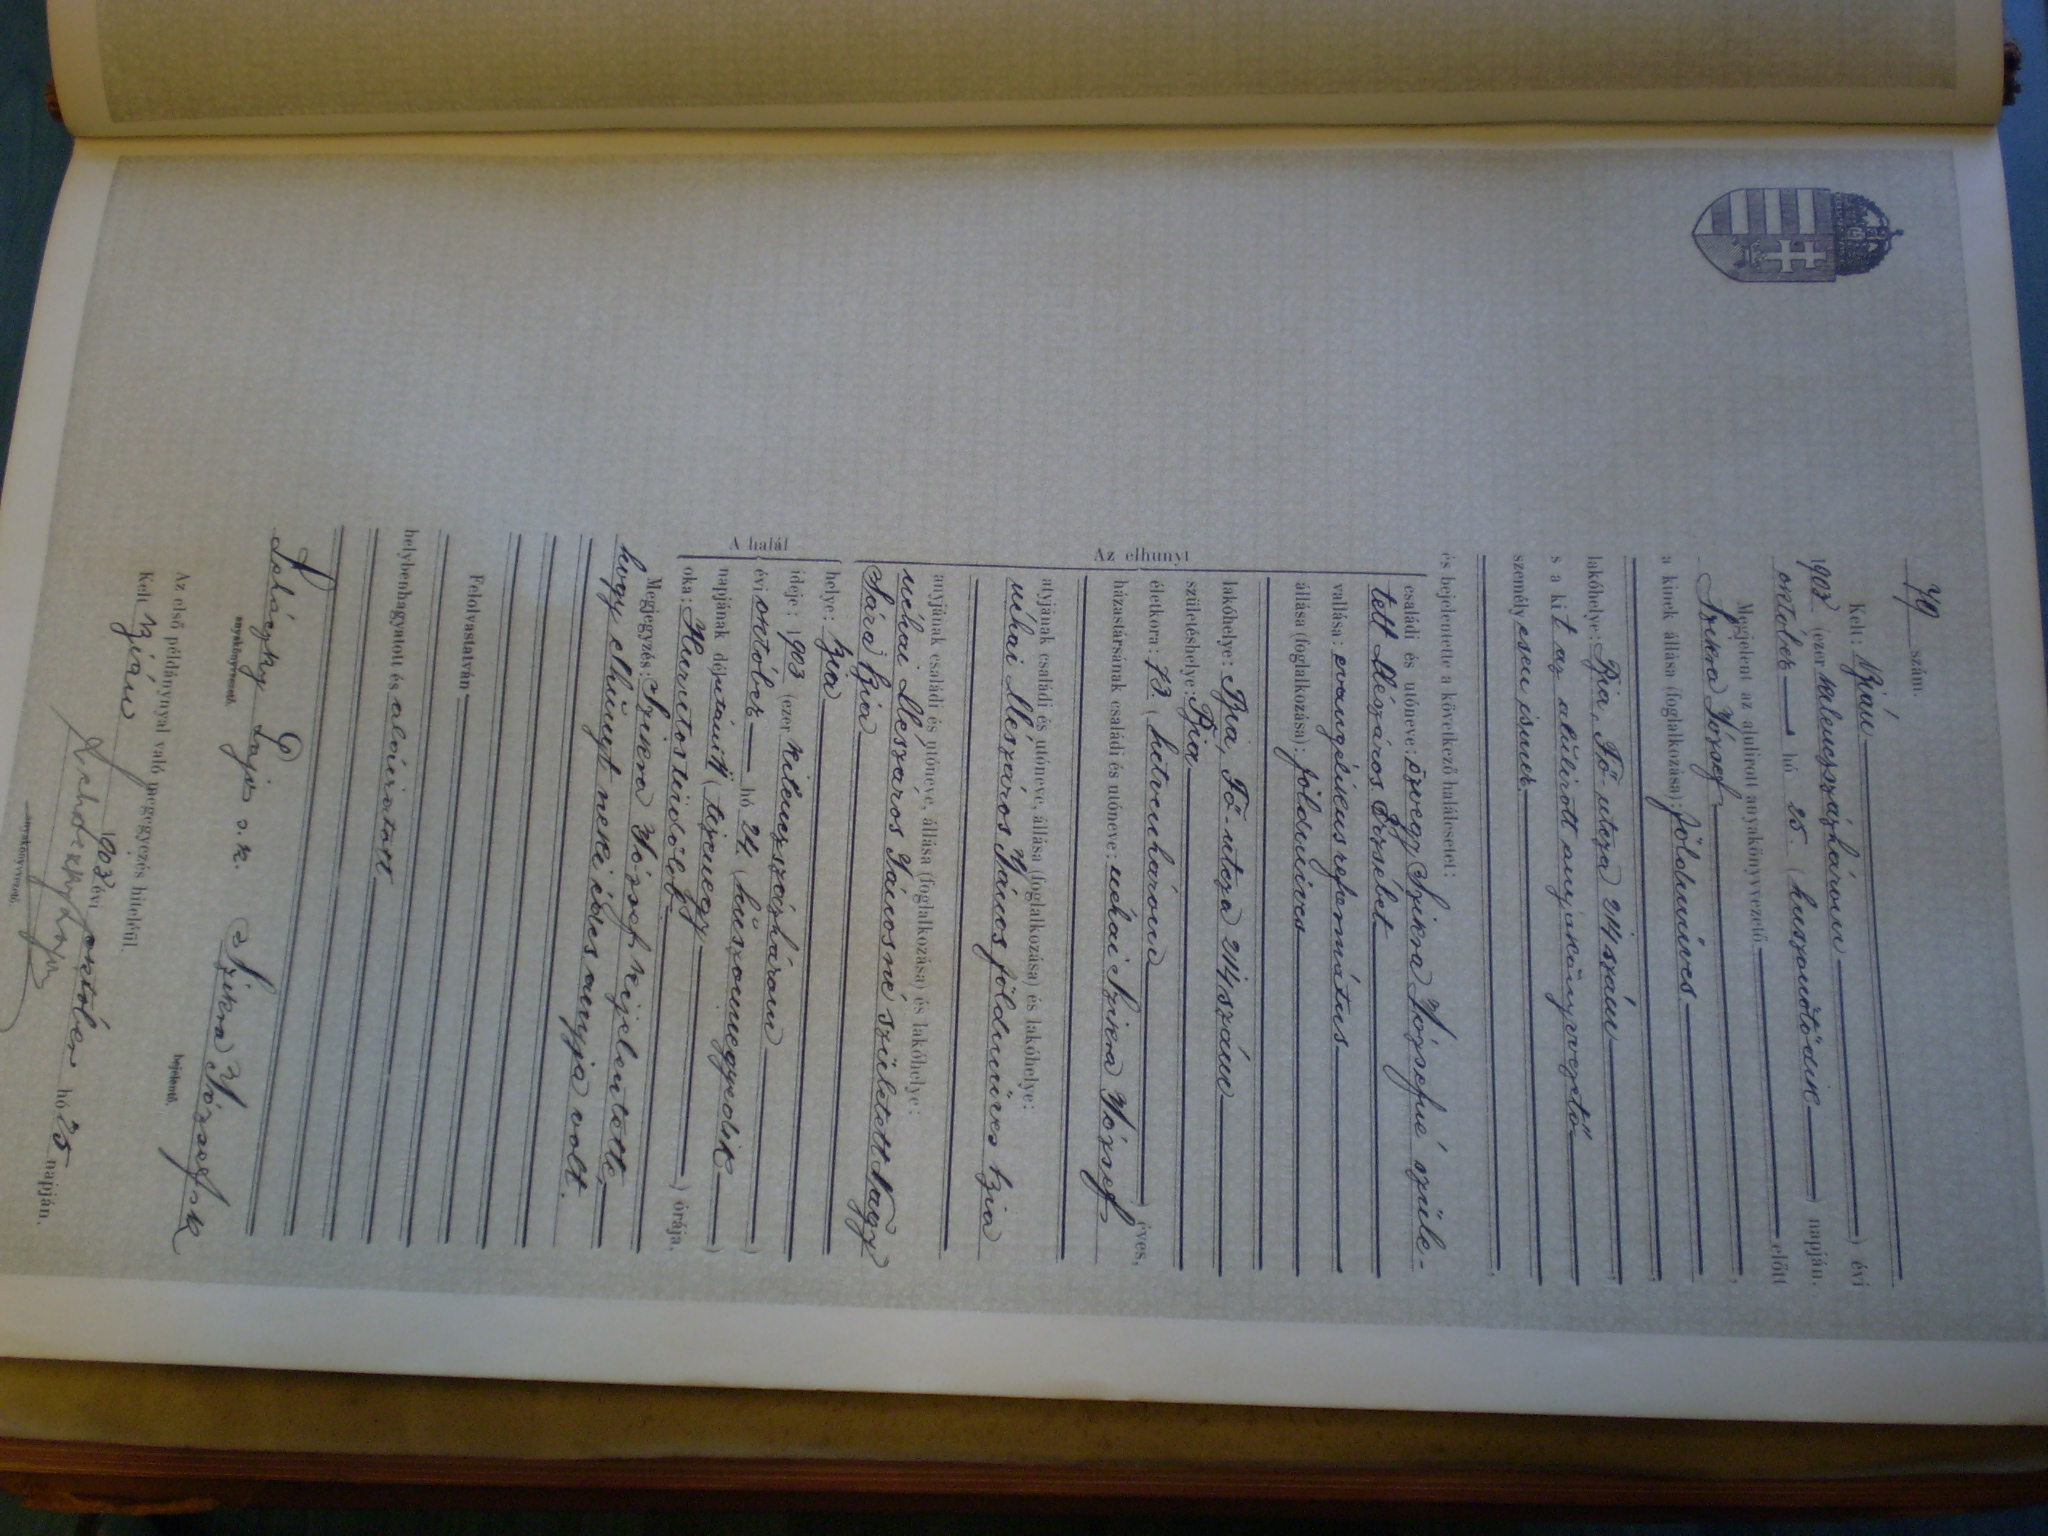 70 szám.
Kelt: Bián
1903 (ezer kilenczszázhárom) évi
október hó 25. (huszonötödik) napján.
Megjelent az alulirott anyakönyvvezető előtt
Szikra József,
a kinek állása (foglalkozása): földmüves
lakóhelye: Bia, Fő-utcza 214 szám,
s a kit az alulirott anyakönyvvezető
személyesen ismer,
és bejelentette a következő halálesetet:
Az elhunyt
családi és utóneve: özvegy Szikra Józsefné szüle-
tett Mészáros Erzsébet
vallása: evangélikus református
állása (foglalkozása): földmüves
lakóhelye: Bia, Fő-utcza 214 szám
születéshelye: Bia
életkora: 73 (hetvenhárom) éves,
házastársának családi és utóneve: néhai Szikra József
atyjának családi és utóneve, állása (foglalkozása) és lakóhelye:
néhai Mészáros János földmüves Bia
anyjának családi és utóneve, állása (foglalkozása) és lakóhelye:
néhai Mészáros Jánosné született Nagy
Sára Bia
A halál
helye: Bia
ideje: 1903 (ezer kilenczszázhárom)
évi október hó 24 (huszonnegyedik)
napjának délutáni 4 órája.
oka: Hurutos tüdőlob
Megjegyzés: Szikra József kijelentette,
hogy elhúnyt neki édes anyja volt.
Felolvastatván
helybenhagyatott és aláiratott
Lajos s. k. Szikra József s k
anyakönyvvezető. bejelentő.
Az első példánynyal való megegyezés hiteléül.
Kelt Bián 1903 évi október hó 25 napján.
anyakönyvvezető.